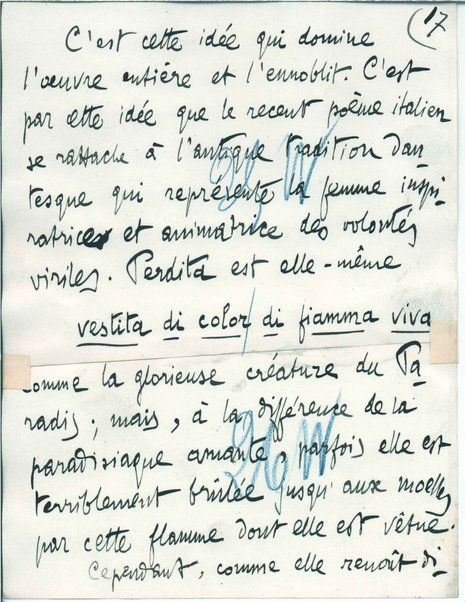 (17
C'est cette idée qui domine
l'œuvre entière et l'ennoblit. C'est
par cette idée que le recent poëme italien
se rattache à l'antique tradition dan
tesque qui représente la femme inspi-
ratrice et animatrice des volontés
viriles. Perdita est elle-même
vestita di color di fiamma viva
comme la glorieuse créature du Pa
radis; mais, à la différence de la
paradisiaque amante, parfois elle est
terriblement brûlée jusqu'aux moelles
par cette flamme dont elle est vêtue.
Cependant, comme elle renoît di-